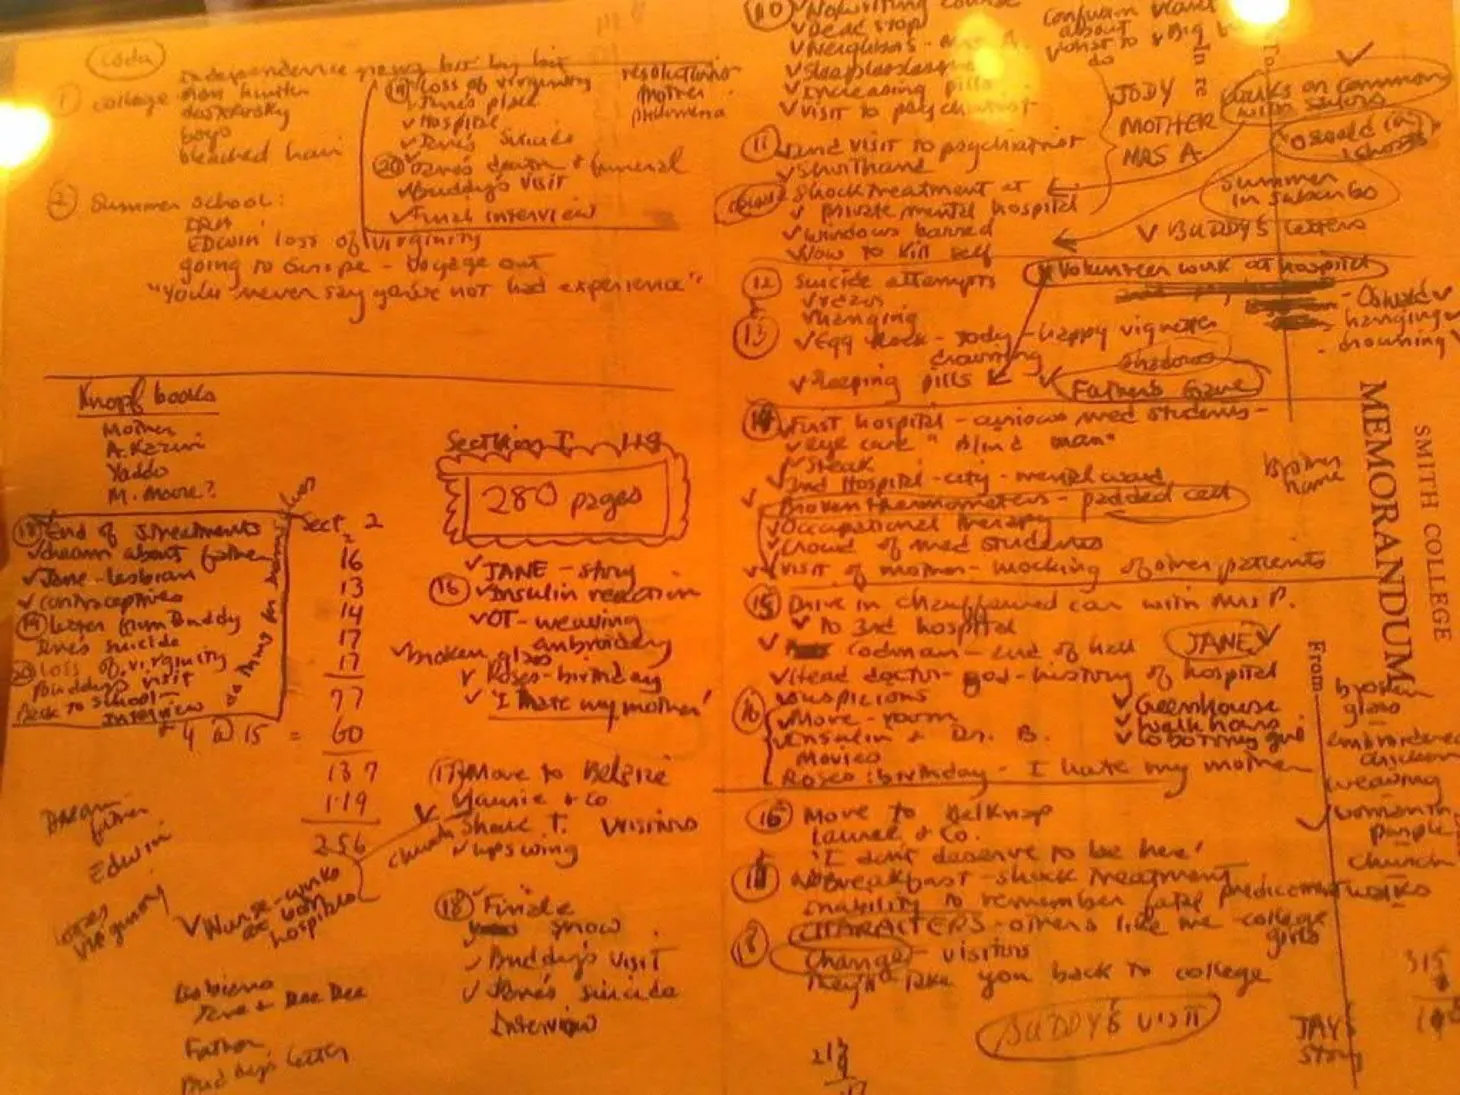 Coda
① college
Independence grows bit by bit
man hunter
dostoevsky
boys
bleached hair
② Summer school:
IRA
EDWIN loss of virginity
going to Europe - voyage out
"You'll never say you've not had experience"
⑲ loss of virginity
✓ Irene's place
✓ Hospital
✓ Jane's Suicide
⑳ Jane's death & funeral
✓ Buddy's visit
✓ Final interview
resolutions
mother
philomena
Knopf books
Mother
A. Kazin
Yaddo
M. Moore?
⑱ End of streatments
✓ dream about father
✓ Jane - lesbian
✓ contraceptives
⑲ letter from Buddy
Jane's suicide
⑳ Loss of virginity
Buddy's visit
Back to school -
Interview
Sect. 2
16
13
14
17
17
77
+ 4 @ 15 = 60
137
119
256
Section I 119
280 pages
✓ JANE - story
⑯ ✓ Insulin reaction
✓ OT - weaving
embroidery
✓ broken glass
✓ Roses - birthday
✓ 'I hate my mother'
⑰ Move to Belsize
Laurie & Co
✓ Shock T. visitors
✓ upswing
church
Dream
father
Edwin
loses
virginity
✓ Nurse - works
at both
hospitals
Lesbians
Jane & Dee Dee
Father
Buddy's letter
⑱ Finale
snow
✓ Buddy's visit
✓ Jane's suicide
Interview
⑩ ✓ Novwriting course
✓ Dead stop
✓ Neighbors - Mrs A.
✓ Sleeplessness
✓ Increasing pills
✓ visit to psychiatrist
Confusion
about
what to do
JODY
MOTHER
MRS A.
In re
To
✓
walks on common
with sailors
⑪ 2nd visit to psychiatrist
✓ Shorthand
Shock treatment at
✓ private mental hospital
✓ Windows barred
✓ How to kill self
Summer
in suburbs
✓ BUDDY'S letters
⑫ Suicide attempts
✓ razor
✓ hanging
✓ Volunteer work at hospital
hanging ✓
drowning ✓
⑬ ✓ Egg Rock - Jody - happy vignette
drowning
✓ sleeping pills
shadows
✓ Father's Grave
⑭ ✓ First hospital - curious med students -
✓ eye care "blind man"
✓ 2nd Hospital - city - mental ward
✓ Broken thermometers - padded cell
✓ Occupational therapy
✓ crowd of med students
✓ visit of mother - mocking of other patients
Brother
name
⑮ Drive in chauffeured car with Mrs P.
✓ To 3rd hospital
✓ Codman - end of hall
JANE ✓
✓ Head doctor - god - history of hospital
✓ suspicions
⑯ ✓ Move - room
✓ Insulin & Dr. B.
Movies
Roses: birthday - I hate my mother
✓ Greenhouse
✓ walk hours
✓ lobotomy girl
⑯ Move to Belknap
Laurie & Co.
'I don't deserve to be here'
✓ Breakfast - shock treatment
Inability to remember fatal predicament
⑱ CHARACTERS - others like me college
girls
Change - visitors
They'll take you back to college
BUDDY'S VISIT
SMITH COLLEGE
MEMORANDUM
From
broken
glass
embroidered
weaving
✓ woman in
purple
church
walks
315
JAY'S
story